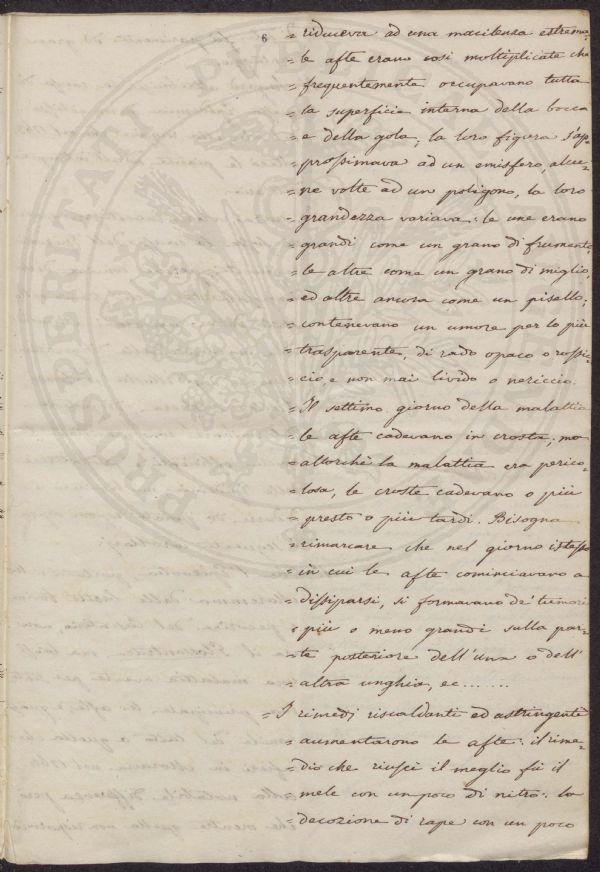 6
= riduceva ad una macilenza estrema,
= le afte erano così moltiplicate che
= frequentemente occupavano tutta
= la superficie interna della bocca
= e della gola; la loro figura s'ap=
= prossimava ad un emisfero, alcu=
= ne volte ad un poligono, la loro
= grandezza variava: le une erano
= grandi come un grano di frumento,
= le altre come un grano di miglio,
= ed altre ancora come un pisello;
= contenevano un umore per lo più
= trasparente, di rado opaco o rossic=
= cio, e non mai livido o nericcio.
= Il settimo giorno della malattia
= le afte cadevano in crosta; ma
= allorchè la malattia era perico=
= losa, le croste cadevano o più
= presto o più tardi. Bisogna
= rimarcare che nel giorno istesso
= in cui le afte cominciavano a
= dissiparsi, si formavano de' tumori
= più o meno grandi sulla par=
= te posteriore dell'una o dell'
= altra unghia, ec.......
= I rimedj riscaldanti ed astringenti
= aumentarono le afte: il rime=
= dio che riuscì il meglio fù il
= mele con un poco di nitro: la
= decozione di rape con un poco
PROSPERITATI PUBLICAE